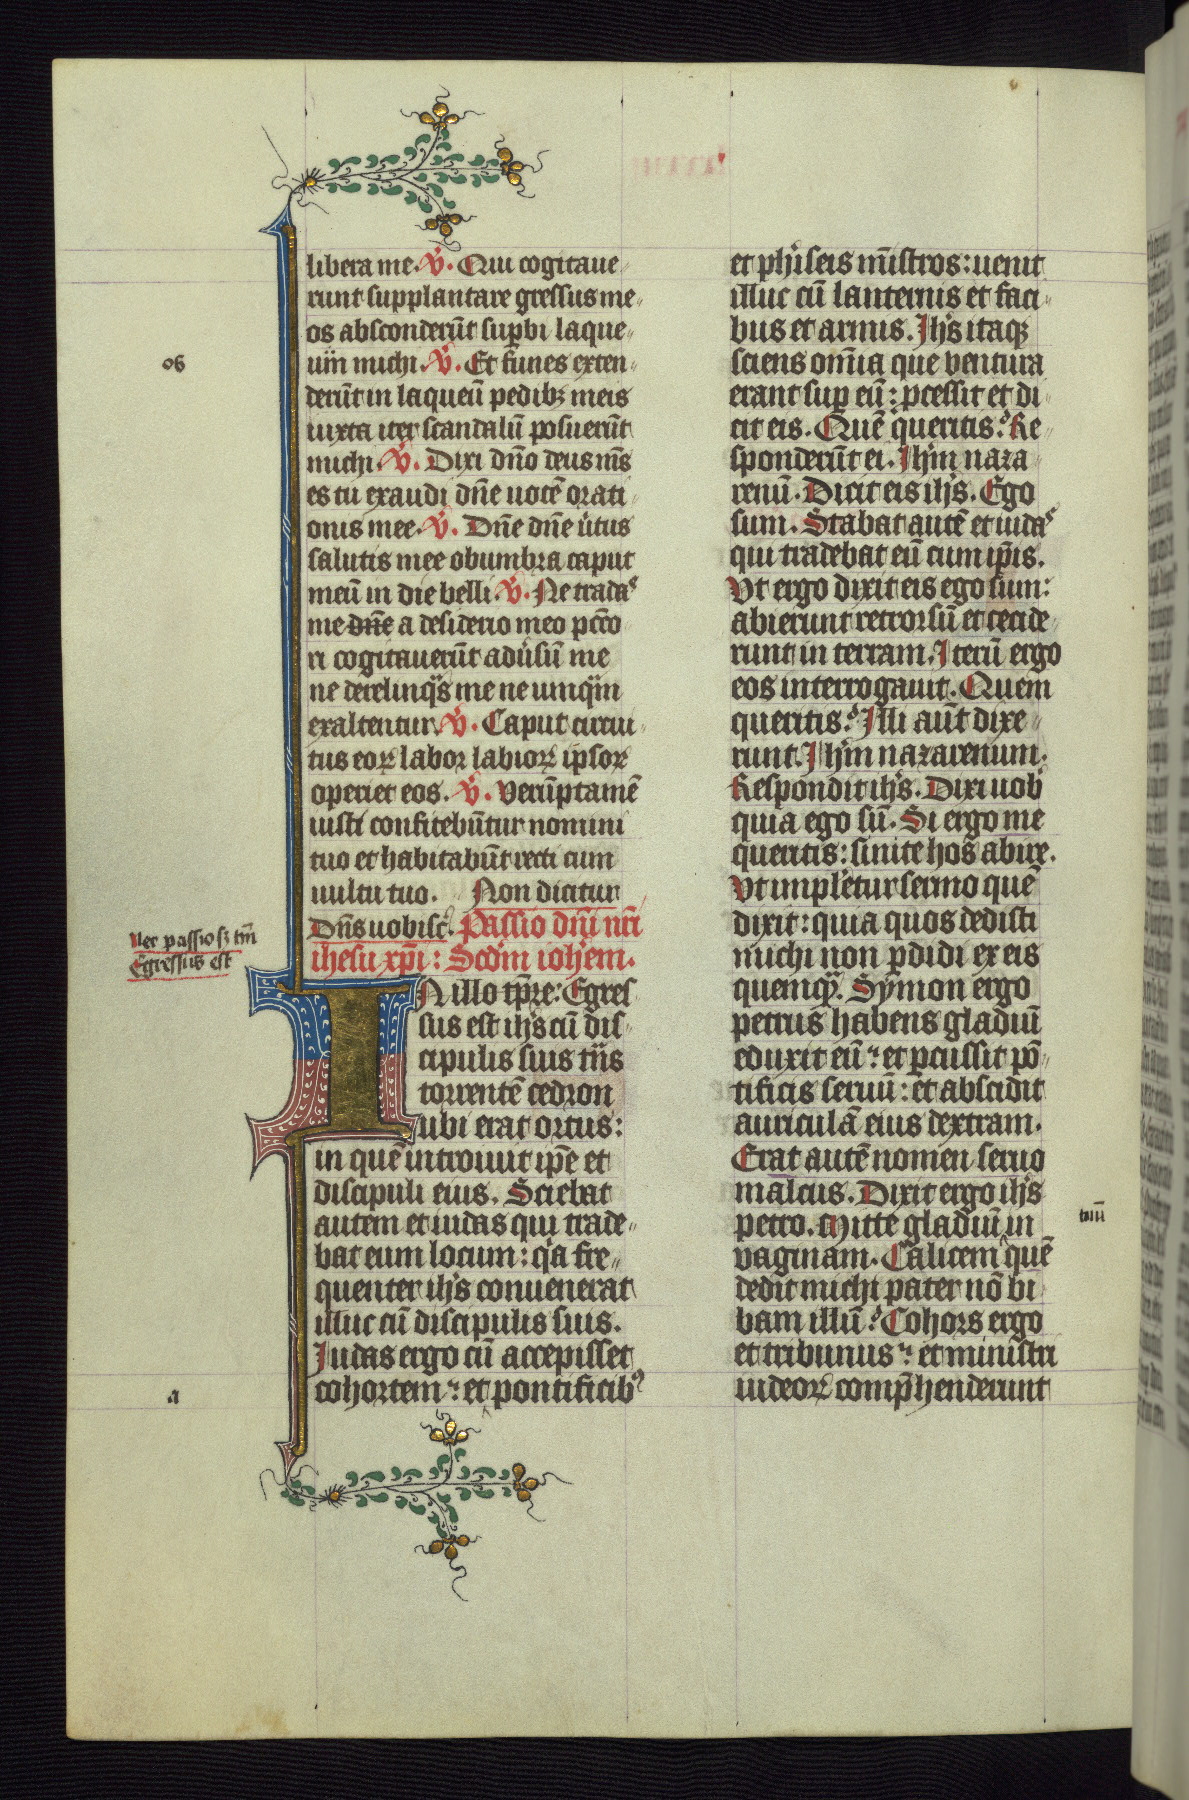 libera me. V. Qui cogitaue
runt supplantare gressus me
os absconderūt supbi laque
um michi. V. Et funes exten
derūt in laqueū pedibꝫ meis
iuxta iter scandalū posuerūt
michi. V. Dixi dño deus ms̄
es tu exaudi dñe uocē orati
onis mee. V. Dñe dñe uͥtus
salutis mee obumbra caput
meū in die belli. V. Ne tradas
me dñe a desiderio meo pctō
ri cogitauerūt aduͥsū me
ne derelinqͣs me ne umqͣm
exaltentur. V. Caput circui
tus eoꝝ labor labioꝝ ipsoꝝ
operiet eos. V. Verūptamē
iusti confitebūtur nomini
tuo et habitabūt recti cum
uultu tuo. Non dicitur
Dñs uobisc̄. Passio dñi nr̄i
ihesu xp̄i : Scd̄m ioh̄em.
Nec passio sꝫ tm̄
Egressus est
IN illo tp̄re: Egres
sus est ih̄s cū dis
cipulis suis tn̄s
torrentē cedron
ubi erat ortus:
in quē introiuit ip̄e et
discipuli eius. Sciebat
autem et iudas qui trade
bat eum locum: qͥa fre
quenter ih̄s conuenerat
illuc cū discipulis suis.
Iudas ergo cū accepisset
cohortem: et pontificibꝰ
a
et phͥseis mīstros: uenit
illuc cū lanternis et faci
bus et armis. Ih̄s itaqꝫ
sciens om̄ia que ventura
erant sup eū: pcessit et di
cit eis. Quē queritis? Re
sponderūt ei. Ih̄m naza
renū. Dicit eis ih̄s. Ego
sum. Stabat autē et iudas
qui tradebat eū cum ip̄is.
Vt ergo dixit eis ego sum:
abierunt retrorsū et cecide
runt in terram. Iterū ergo
eos interrogauit. Quem
queritis? Illi aūt dixe
runt. Ih̄m nazarenum.
Respondit ih̄s. Dixi uobͥ
quia ego sū. Si ergo me
queritis: sinite hos abire.
Vt impleͥtur sermo quē
dixit: quia quos dedisti
michi non pdidi ex eis
quemqͣ. Symon ergo
petrus habens gladiū
eduxit eū: et pcussit pō
tificis seruū: et abscidit
auriculā eius dextram.
Erat autē nomen seruo
malcus. Dixit ergo ih̄s
petro. Mitte gladiū in
vaginam. Calicem quē
dedit michi pater nō bi
bam illū? Cohors ergo
et tribunus: et ministri
iudeoꝝ comp̄henderunt
tuū